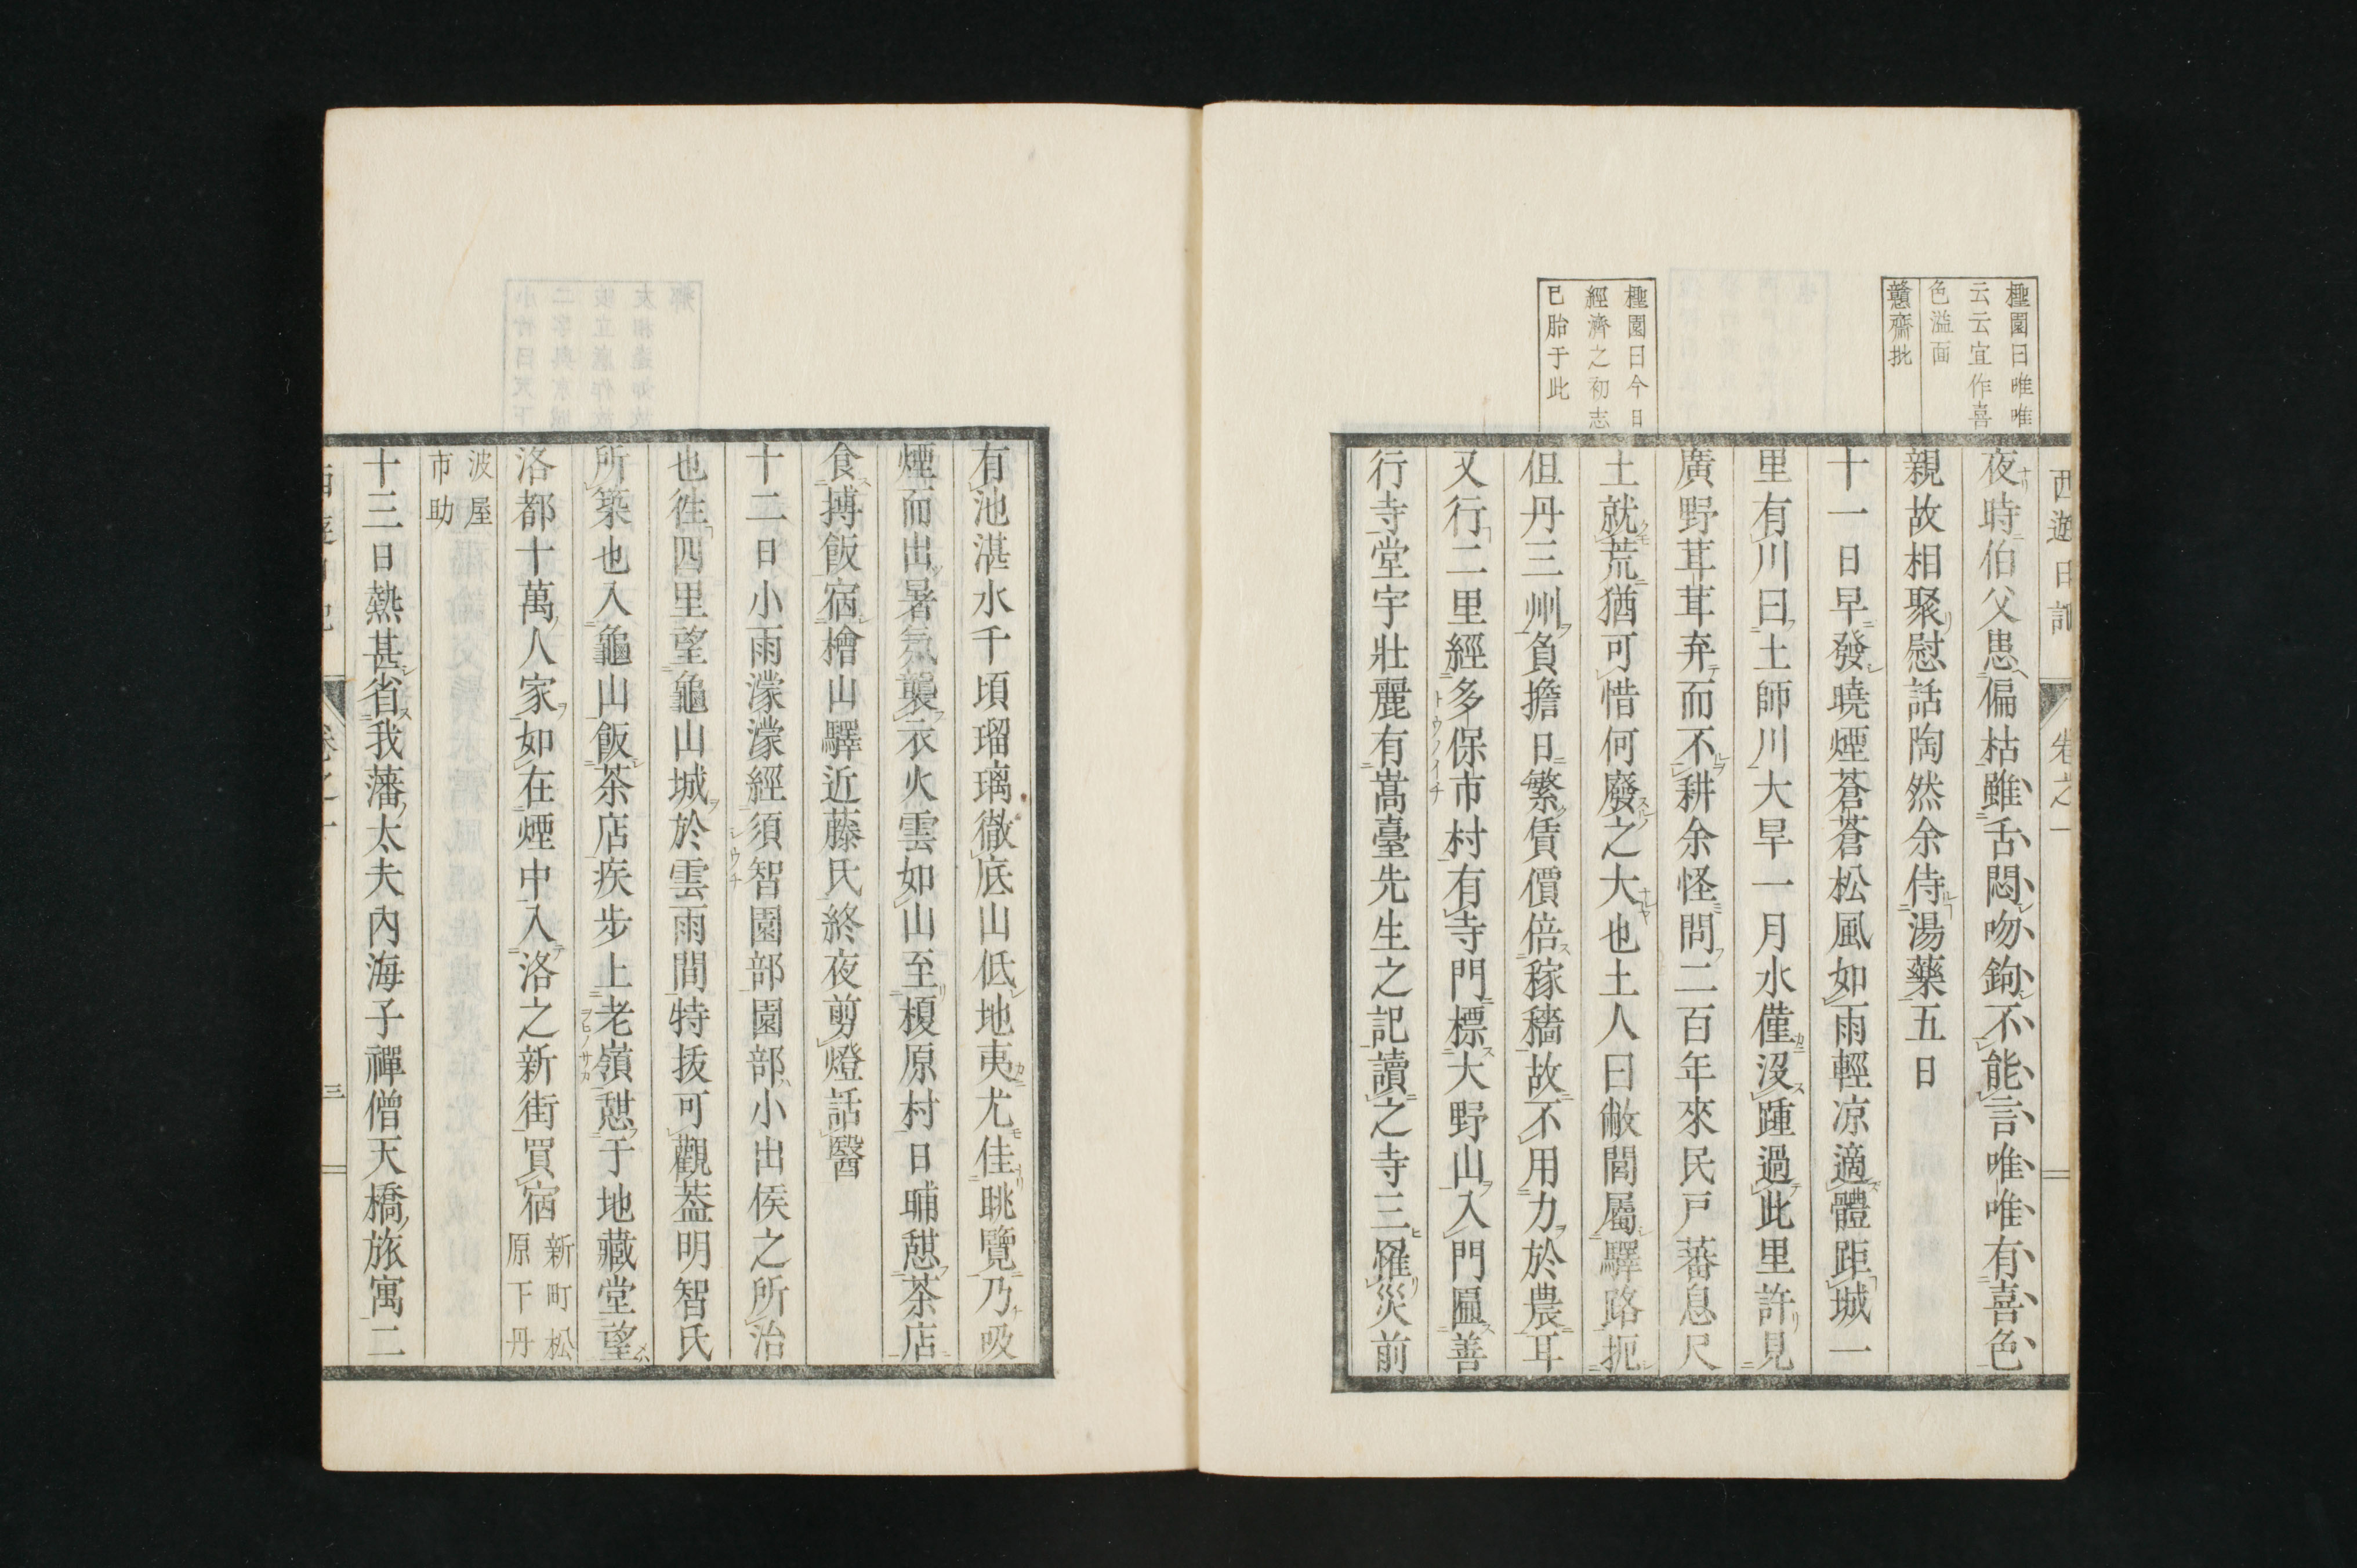 西遊日記 卷之一
櫣園曰唯唯
云云宜作喜
色溢面
戇齋批
夜時伯父患偏枯雖舌悶吻鉤不能言唯唯有喜色
親故相聚慰話陶然余侍湯藥五日
十一日早發曉煙蒼蒼松風如雨輕凉適體距城一
里有川曰土師川大旱一月水僅沒踵過此里許見
廣野茸茸弃而不耕余怪問二百年來民戶蕃息尺
土就荒猶可惜何廢之大也土人曰敝閭屬驛路扼
但丹三州負擔日繁賃價倍稼穡故不用力於農耳
又行二里經多保市村有寺門標大野山入門匾善
行寺堂宇壯麗有嵩臺先生之記讀之寺三罹災前
園曰今日
經濟之初志
已胎于此
有池湛水千頃瑠璃徹底山低地夷尤佳眺覽乃吸
煙而出暑氛襲衣火雲如山至榎原村日晡憇茶店
食摶飯宿檜山驛近藤氏終夜剪燈話醫
十二日小雨濛濛經須智園部園部小出侯之所治
也徃四里望龜山城於雲雨間特拔可觀葢明智氏
所築也入龜山飯茶店疾步上老嶺憇于地藏堂望
洛都十萬人家如在煙中入洛之新街買宿新町松原下丹
波屋市助
十三日熱甚省我藩太夫內海子禪僧天橋旅寓二
西遊日記 卷之一 三